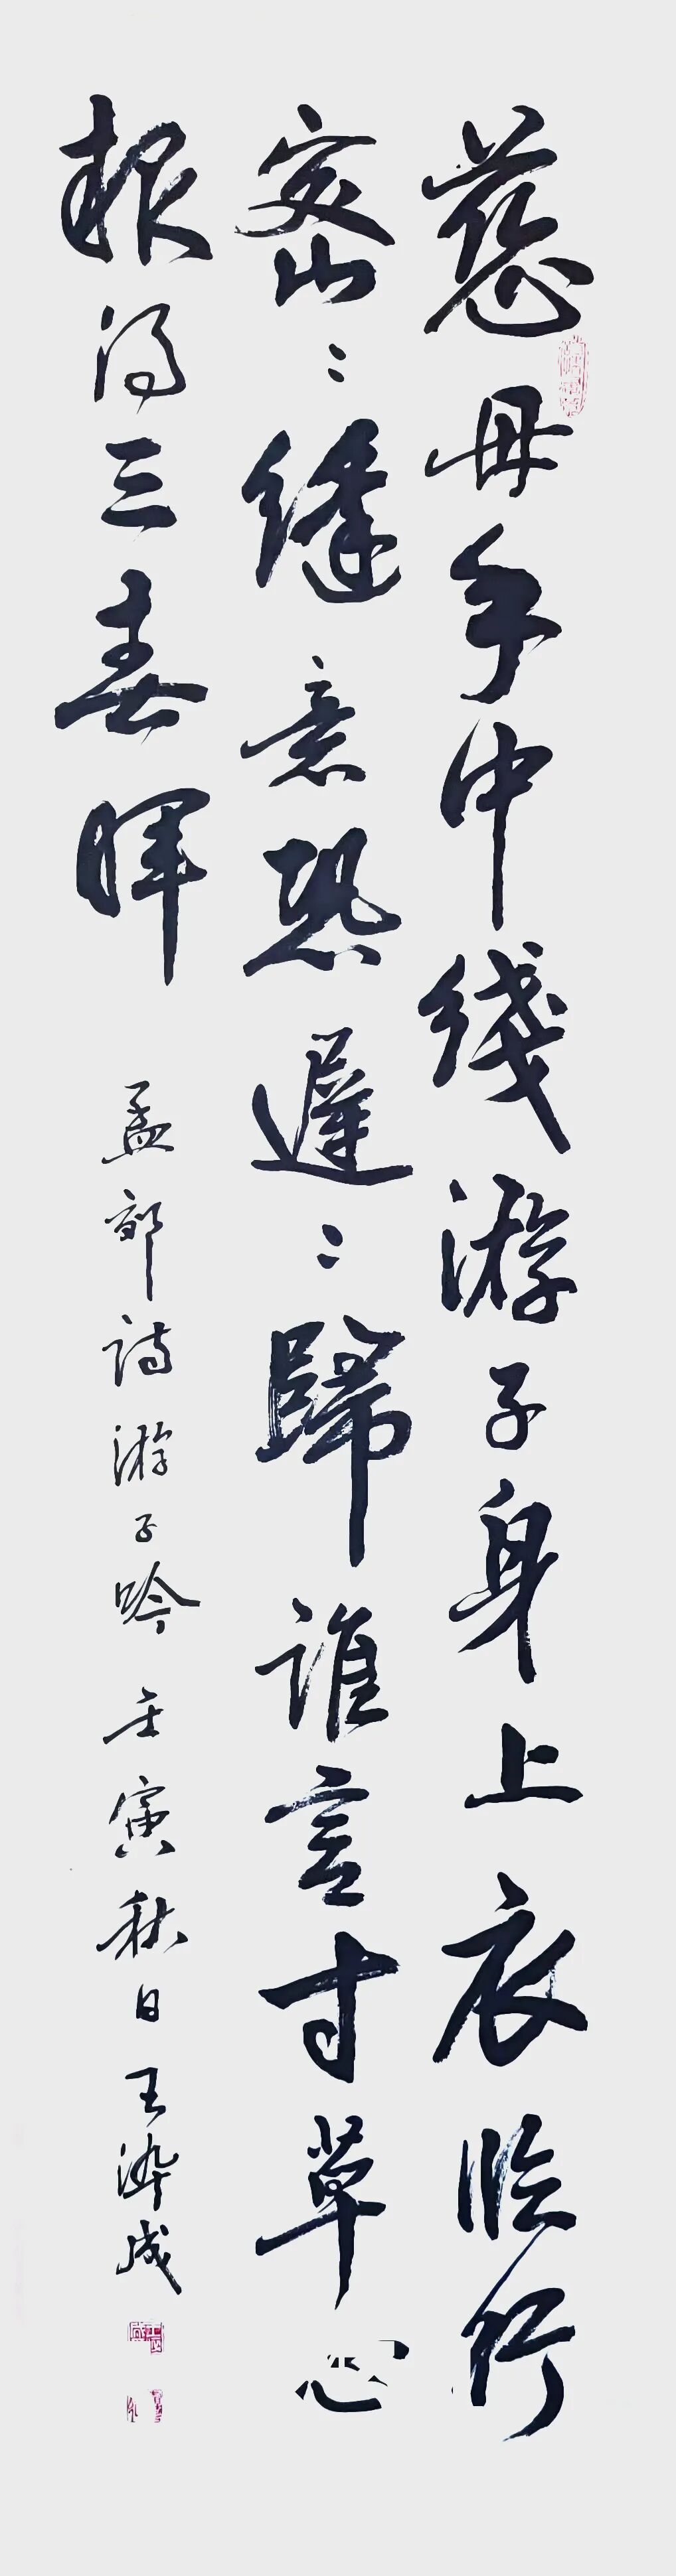 慈母手中线游子身上衣临行
密密缝意恐遲遲歸谁言寸草心
报得三春晖
孟郊诗游子吟 壬寅秋日 王染成